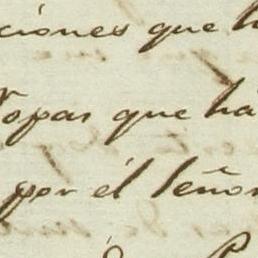 ciones que h
opas que ha
por él Señor